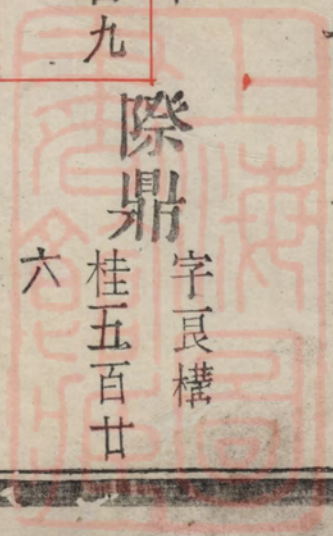 九
際鼎
字良構
桂五百廿
六